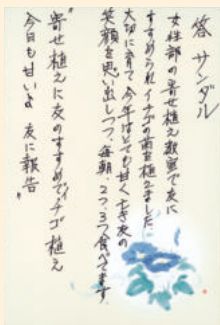 答 サンダル
女性部の寄せ植え教室で友に
すすめられイチゴの苗を植えました。
大切に育て今年はとても甘く亡き友の
笑顔を思い出しつつ、毎朝、2つ、3つ食べてます。
"寄せ植えに友のすすめでイチゴ植え
今日も甘いよ 友に報告"